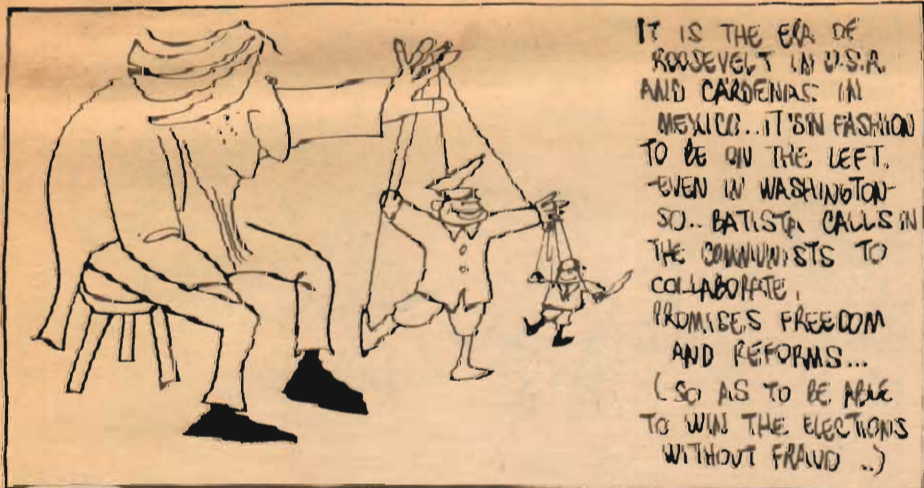 IT IS THE ERA OF
ROOSEVELT IN U.S.A.
AND CARDENAS IN
MEXICO.. IT'S IN FASHION
TO BE ON THE LEFT.
-EVEN IN WASHINGTON-
SO.. BATISTA CALLS IN
THE COMMUNISTS TO
COLLABORATE,
PROMISES FREEDOM
AND REFORMS...
(SO AS TO BE ABLE
TO WIN THE ELECTIONS
WITHOUT FRAUD ..)